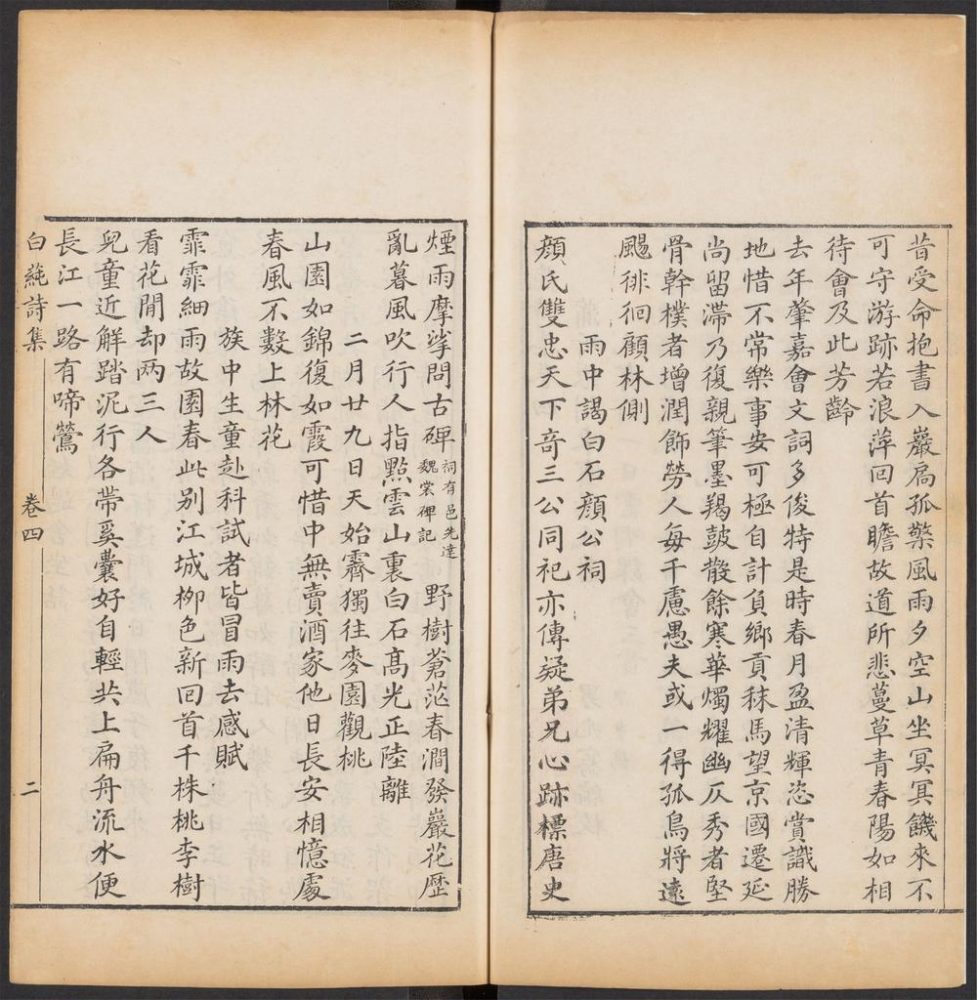 昔受命抱書入巖扃孤檠風雨夕空山坐冥冥饑來不
可守游跡若浪萍回首瞻故道所悲蔓草青春陽如相
待會及此芳齡
去年肇嘉會文詞多俊特是時春月盈清輝恣賞識勝
地惜不常樂事安可極自計負鄉貢秣馬望京國遷延
尚留滯乃復親筆墨羯鼓散餘寒華燭耀幽仄秀者堅
骨幹樸者增潤飾勞人每千慮愚夫或一得孤鳥將遠
颺徘徊顧林側
雨中謁白石顏公祠
顏氏雙忠天下奇三公同祀亦傳疑弟兄心跡標唐史
煙雨摩挲問古碑祠有邑先達魏裳碑記野樹蒼茫春澗發巖花歷
亂暮風吹行人指點雲山裏白石高光正陸離
二月廿九日天始霽獨往麥園觀桃
山園如錦復如霞可惜中無賣酒家他日長安相憶處
春風不數上林花
族中生童赴科試者皆冒雨去感賦
霏霏細雨故園春此别江城柳色新回首千株桃李樹
看花閒却两三人
兒童近解踏泥行各帶奚囊好自輕共上扁舟流水便
長江一路有啼鶯
白蒓詩集 卷四 二